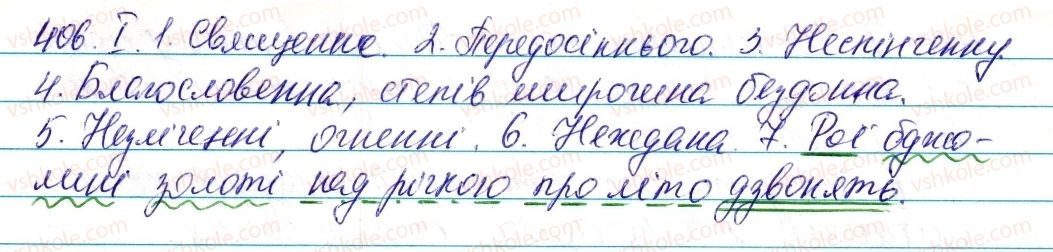 406. I. 1. Священне. 2. Передосіннього. 3. Нескінченну
4. Благословенна, степів широчина бездонна.
5. Незліченні, огненні. 6. Неждана. 7. Рої бджо-
лині золоті над річкою про літо дзвонять.